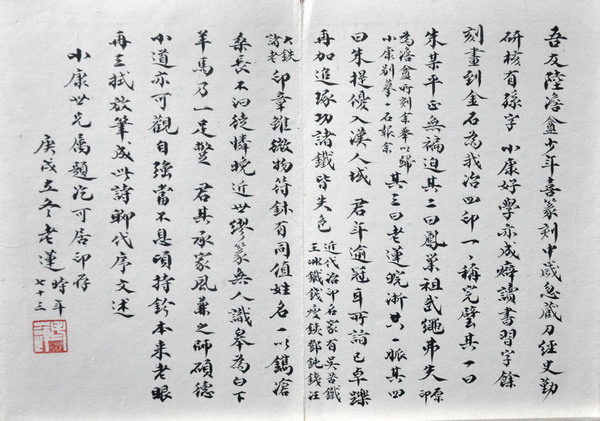 吾友陸澹盦少年喜篆刻中歲忽藏刀經史勤
研核有孫字小康好學亦成癖讀書習字餘
刻畫到金石為我治四印一一稱完璧其一曰
朱某平正無褊迫其二曰鳳巢祖武繩弗失原印
為澹盦所刻余摹以歸小康别摹一石報余其三曰老蓮皖浙共一脈其四
曰朱提優入漢人域 君年逾冠耳所詣已卓躒
再加追琢功諸鐵皆失色近代治印名家有吳苦鐵王冰鐵錢瘦鐵鄧鈍鐵汪
大鐵諸老印章雖微物符鉥有同值姓名一以鐫滄
桑長不汩後憐晚近世繆篆無人識皋為白下
羊馬乃一足蹩 君其承家風兼之師碩德
小道亦可觀自強當不息頃持鈐本來老眼
再三拭放筆成此詩聊代序文述
小康世兄属題汔可居印存
庚戌立冬老蓮時年七十三